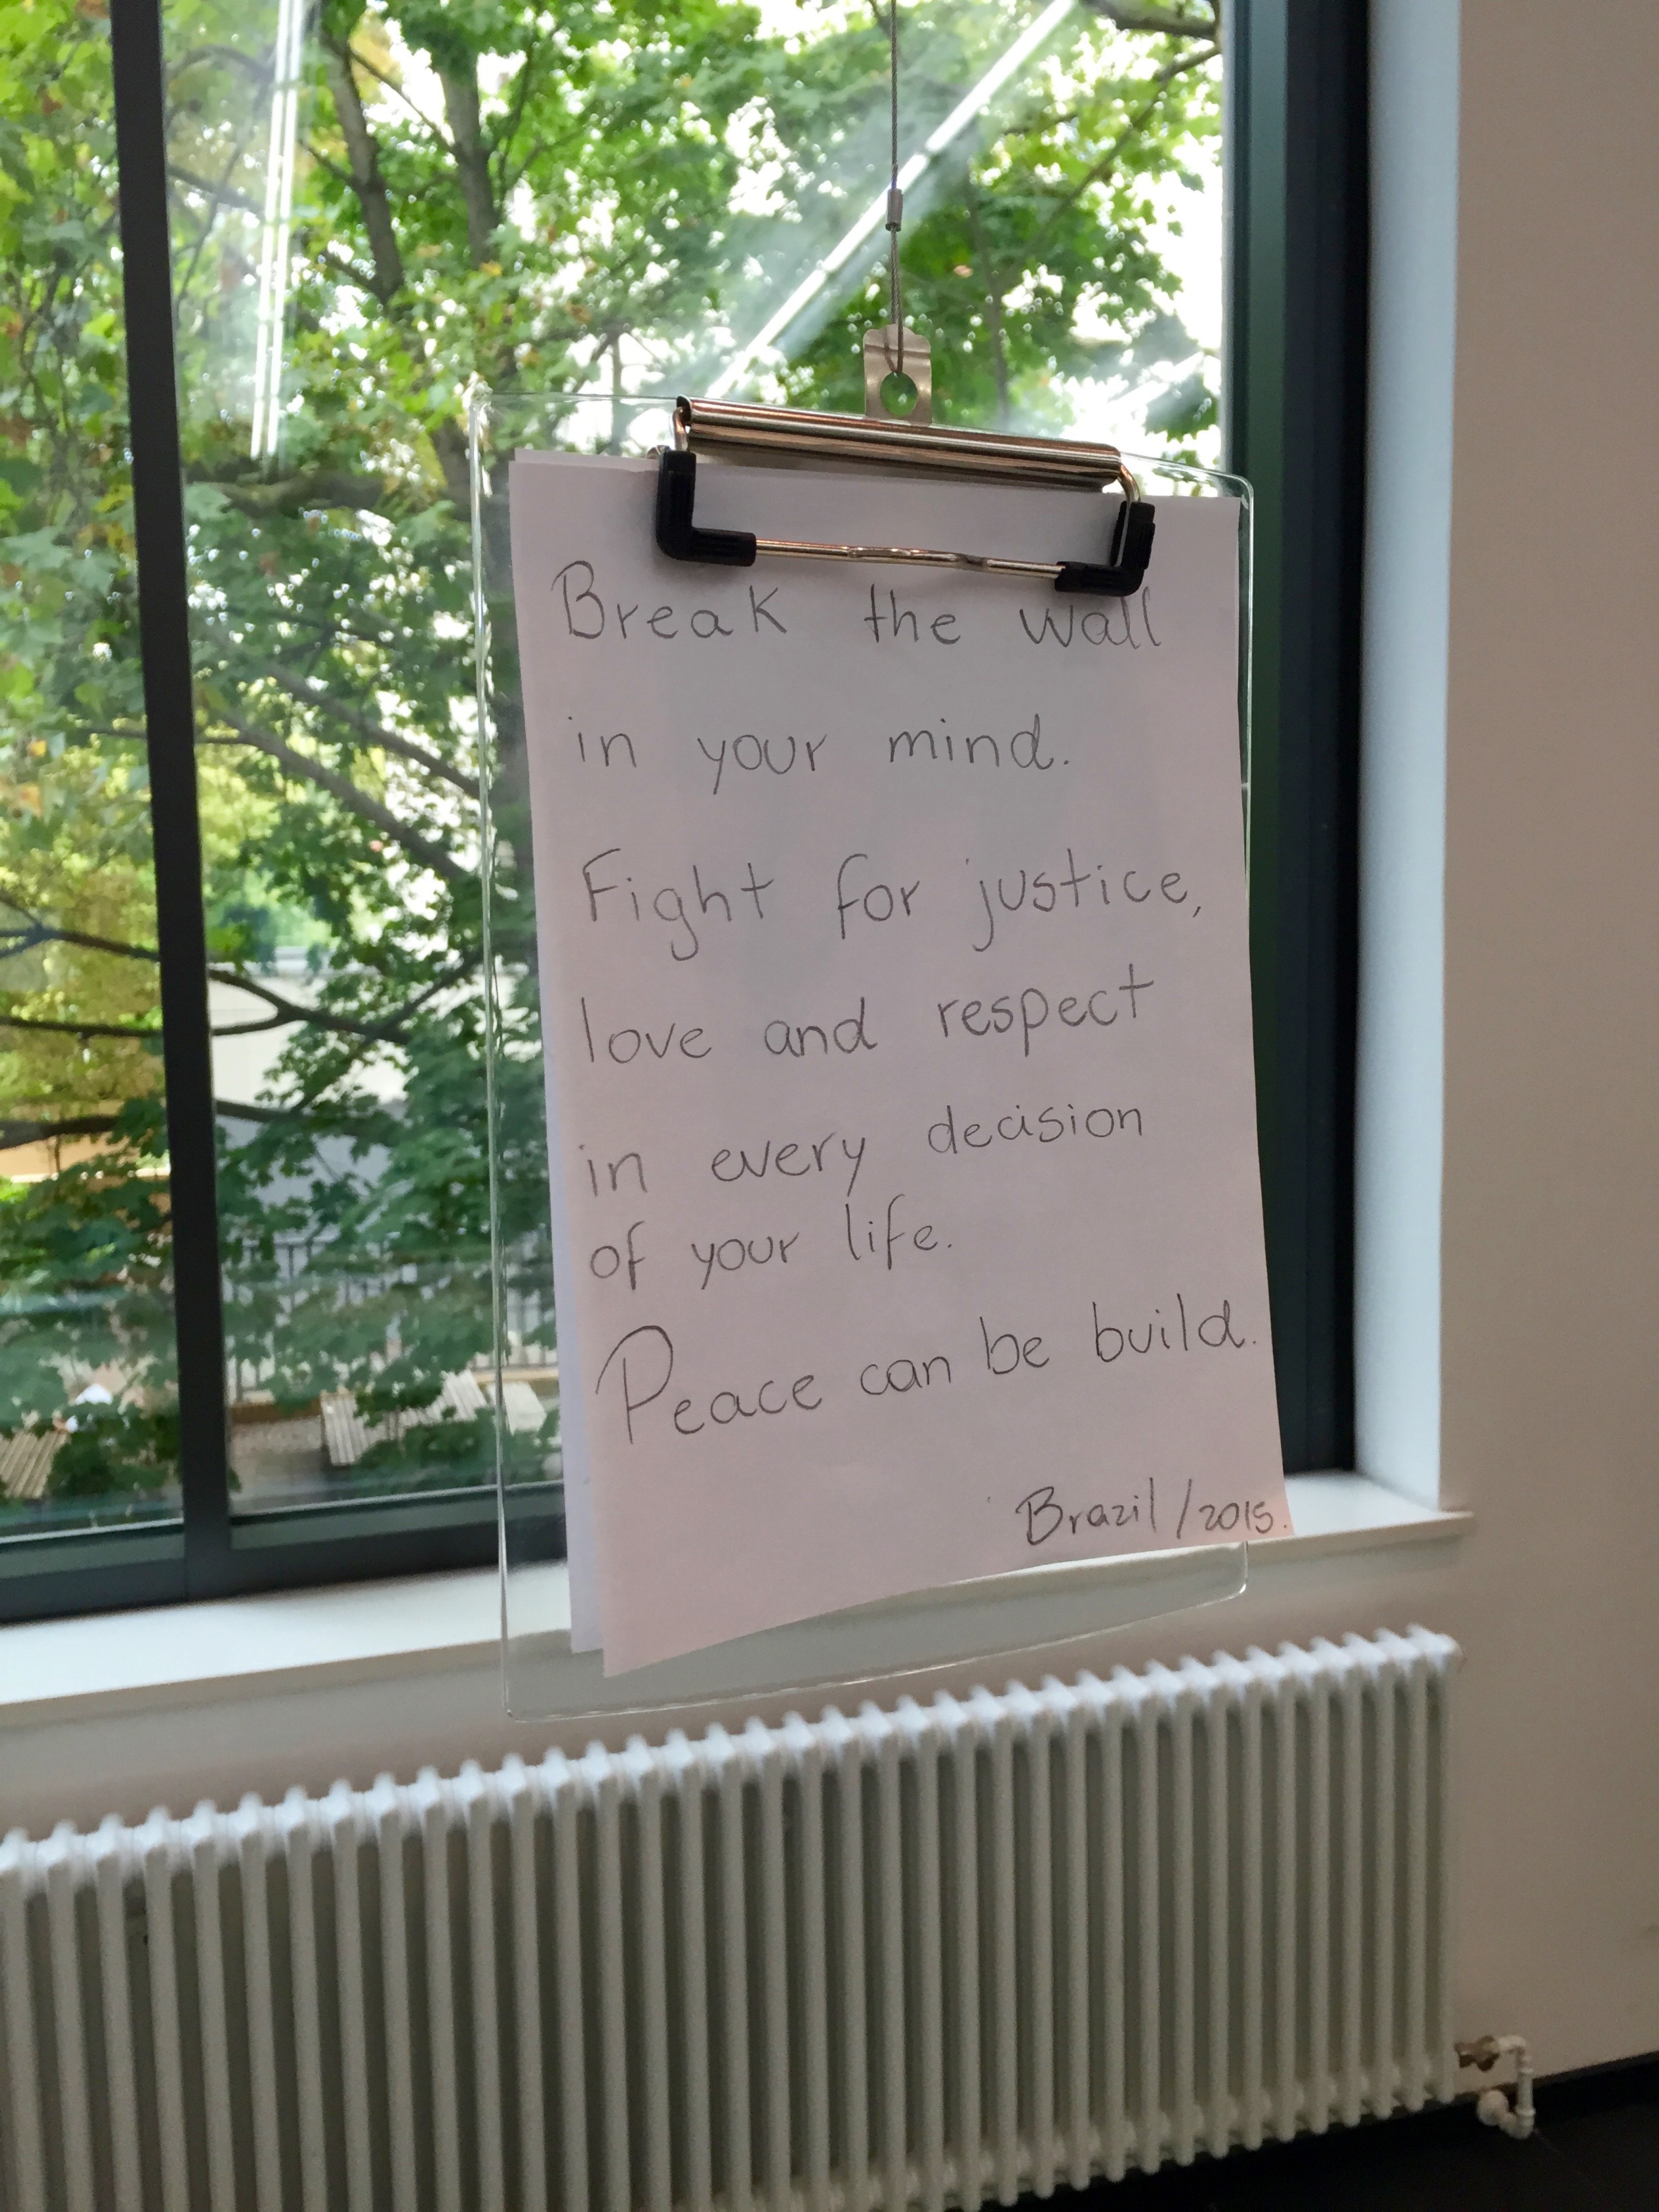 Break the wall
in your mind.
Fight for justice,
love and respect
in every decision
of your life.
Peace can be build.
Brazil/2015.